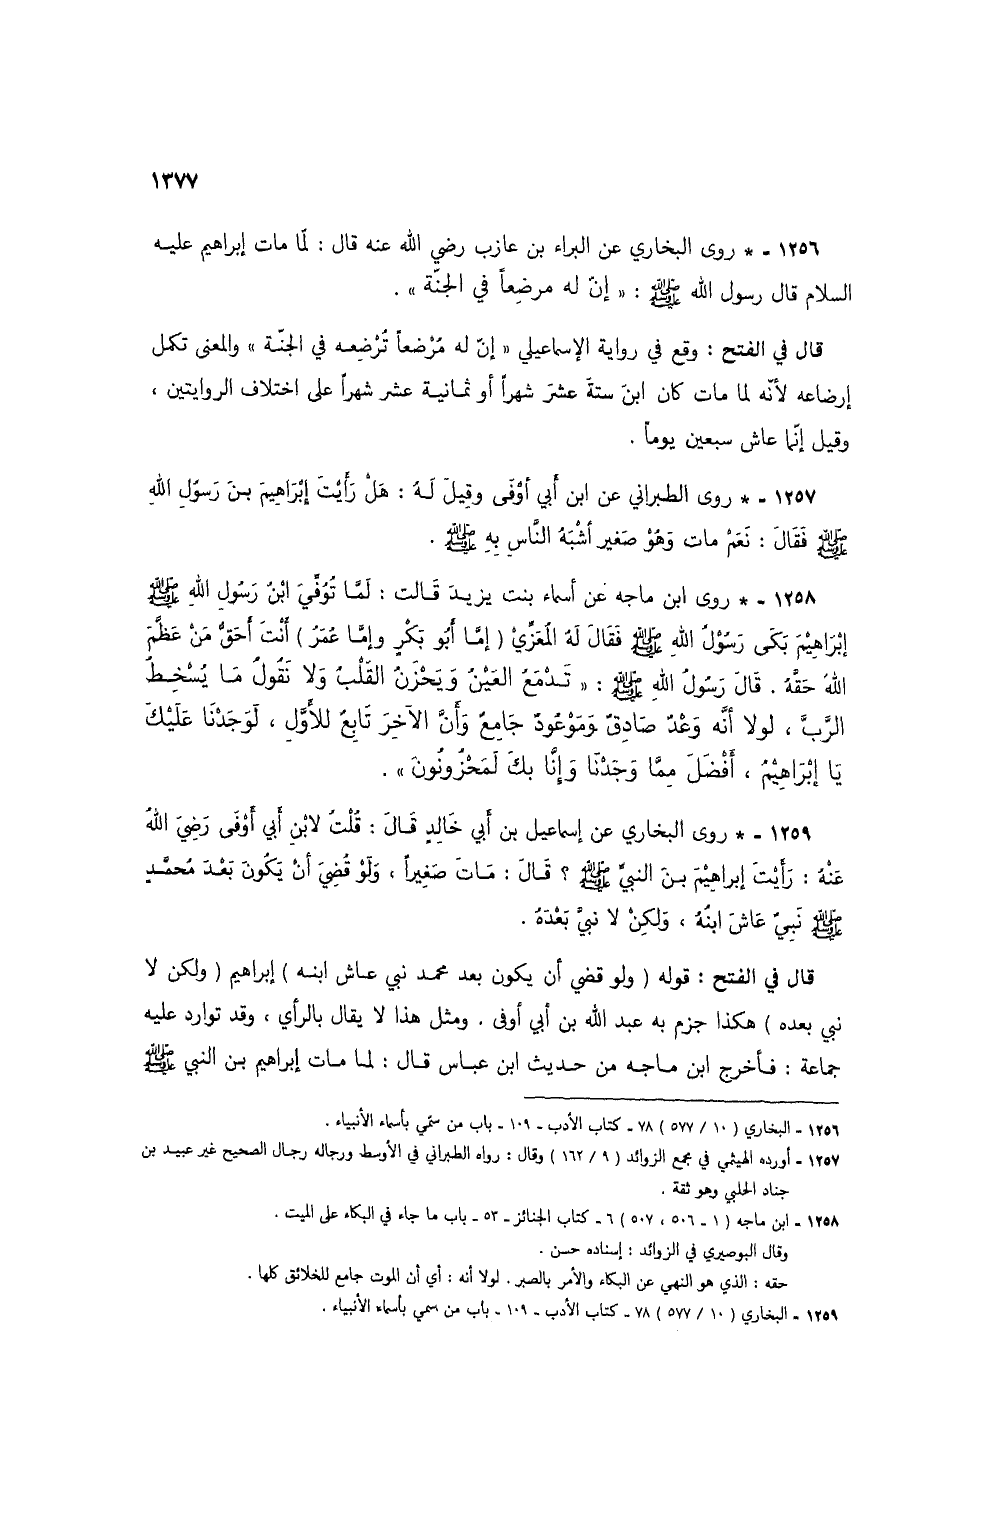 ١٣٧٧
١٢٥٦ - * روى البخاري عن البراء بن عازب رضي الله عنه قال : لمّا مات إبراهيم عليه
السلام قال رسول الله ﷺ : « إنّ له مرضِعاً في الجنّة » .
قال في الفتح : وقع في رواية الإسماعيلي « إنّ له مُرْضعاً تُرْضِعه في الجنّة » والمعنى تكمل
إرضاعه لأنّه لما مات كان ابنَ ستةَ عشرَ شهراً أو ثمانية عشر شهراً على اختلاف الروايتين ،
وقيل إنّما عاش سبعين يوماً .
١٢٥٧ - * روى الطبراني عن ابن أبي أوْفَى وقِيلَ لَهُ : هَلْ رَأَيْتَ إبْرَاهِيمَ بنَ رَسوُلِ اللهِ
ﷺ فَقَالَ : نَعَمْ مات وَهُوْ صَغير أشْبَهُ النَّاسِ بِهِ ﷺ .
١٢٥٨ - * روى ابن ماجه عن أسماء بنت يزيدَ قَالت : لَمَّا تُوُفِّيَ ابْنُ رَسُولِ اللهِ ﷺ
إبْرَاهِيْمَ بَكَى رَسُوْلُ اللهِ ﷺ فَقَالَ لَهُ المُعَزِّيْ ( إمَّا أَبُو بَكْرٍ وإمَّا عُمَرُ ) أَنْتَ أحَقُّ مَنْ عَظَّمَ
اللهُ حَقَّهُ . قَالَ رَسُولُ اللهِ ﷺ : « تَدْمَعُ العَيْنُ وَيَحْزَنُ القَلْبُ وَلا نَقُولُ مَا يُسْخِطُ
الرَّبَّ ، لولا أنَّه وَعْدٌ صَادِقٌ وَمَوْعُودٌ جَامِعٌ وَأنَّ الآخِرَ تَابِعٌ للأوَّلِ ، لَوَجَدْنَا عَلَيْكَ
يَا إبْرَاهِيْمُ ، أَفْضَلَ مِمَّا وَجَدْنَا وَإنَّا بكَ لَمَحْزُونُونَ » .
١٢٥٩ - * روى البخاري عن إسماعيل بن أبي خَالِدٍ قَالَ : قُلْتُ لابْنِ أَبي أَوْفَى رَضِيَ اللهُ
عَنْهُ : رَأيْتَ إبراهِيْمَ بنَ النبيِّ ﷺ ؟ قَالَ : مَاتَ صَغِيراً ، وَلَوْ قُضِيَ أنْ يَكُونَ بَعْدَ مُحمَّدٍ
ﷺ نَبِيٌ عَاشَ ابنُهُ ، وَلكِنْ لا نبيَّ بَعْدَهُ .
قال في الفتح : قوله ( ولو قضي أن يكون بعد محمد نبي عاش ابنه ) إبراهيم ( ولكن لا
نبي بعده ) هكذا جزم به عبد الله بن أبي أوفى . ومثل هذا لا يقال بالرأي ، وقد توارد عليه
جماعة : فأخرج ابن ماجه من حديث ابن عباس قال : لما مات إبراهيم بن النبي ﷺ
١٢٥٦ - البخاري ( ١٠ / ٥٧٧ ) ٧٨ - كتاب الأدب - ١٠٩ - باب من سمّي بأسماء الأنبياء .
١٢٥٧ - أورده الهيثمي في مجمع الزوائد ( ٩ / ١٦٢ ) وقال : رواه الطبراني في الأوسط ورجاله رجال الصحيح غير عبيد بن
جناد الحلبي وهو ثقة .
١٢٥٨ - ابن ماجه ( ١ - ٥٠٦ ، ٥٠٧ ) ٦ - كتاب الجنائز - ٥٣ - باب ما جاء في البكاء على الميت .
وقال البوصيري في الزوائد : إسناده حسن .
حقه : الذي هو النهي عن البكاء والأمر بالصبر . لولا أنه : أي أن الموت جامع للخلائق كلها .
١٢٥٩ - البخاري ( ١٠ / ٥٧٧ ) ٧٨ - كتاب الأدب - ١٠٩ - باب من سمي بأسماء الأنبياء .